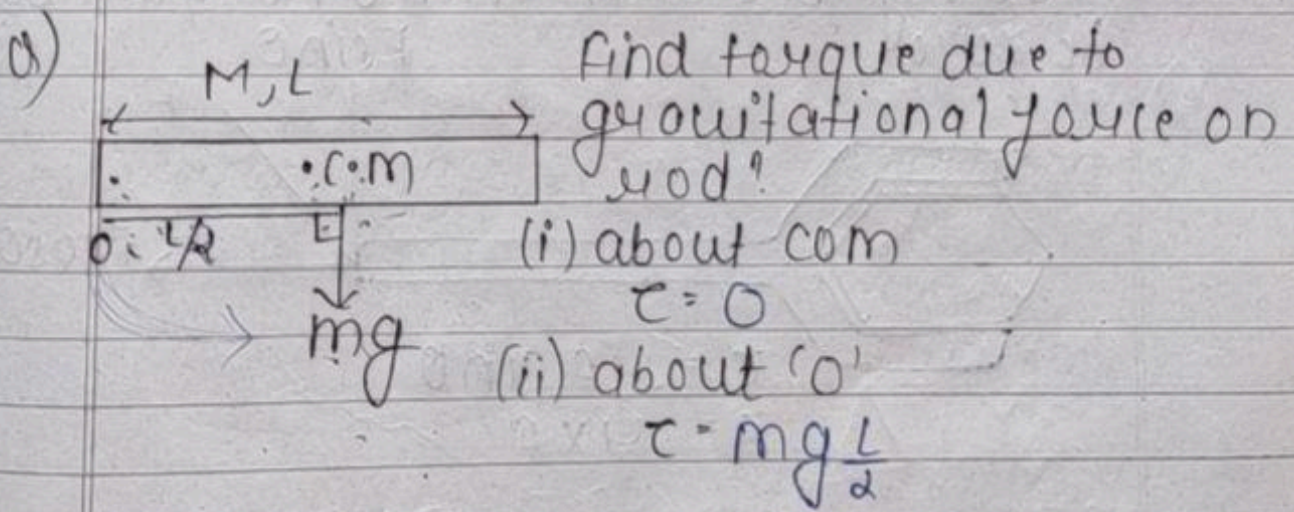 Q)
M, L
Find torque due to
gravitational force on
rod?
.C.M
O. L/2
(i) about com
τ = 0
mg
(ii) about 'O'
τ = mg L/2